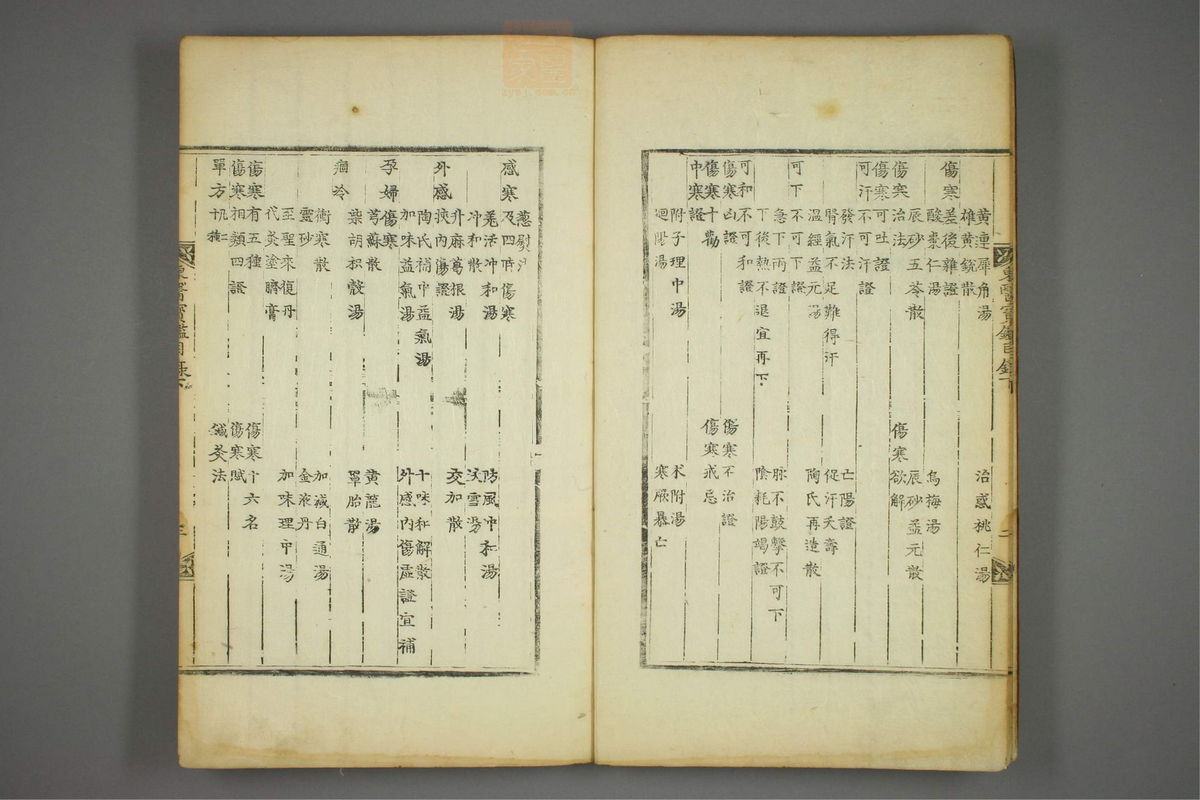 黃連犀角湯
治惑桃仁湯
雄黃銳散
傷寒差後雜證
酸棗仁湯
烏梅湯
辰砂五苓散
辰砂益元散
傷寒治法
傷寒欲解
傷寒可吐證
可汗不可汗證
發汗法
亡陽證
腎氣不足難得汗
促汗夭壽
溫經益元湯
陶氏再造散
可下不可下證
急下兩證
脉不鼓擊不可下
下後熱不退宜再下
陰耗陽竭證
可和不可和證
傷寒凶證
傷寒不治證
傷寒十勸
傷寒戒忌
中寒證
附子理中湯
朮附湯
廻陽湯
寒厥暴亡
東醫寶鑑目錄下
二
葱熨法
感寒及四時傷寒
羌活冲和湯
防風冲和湯
冲和散
升麻葛根湯
交加散
外感挾內傷證
陶氏補中益氣湯
十味和解散
加味益氣湯
外感內傷虛證宜補
孕婦傷寒
芎蘇散
黃龍湯
柴胡枳殼湯
罩胎散
痼冷
衛寒散
加減白通湯
靈砂
金液丹
至聖來復丹
加味理中湯
代灸塗臍膏
傷寒有五種
傷寒十六名
傷寒相類四證
傷寒賦
單方
鍼灸法
東醫寶鑑目錄下
三